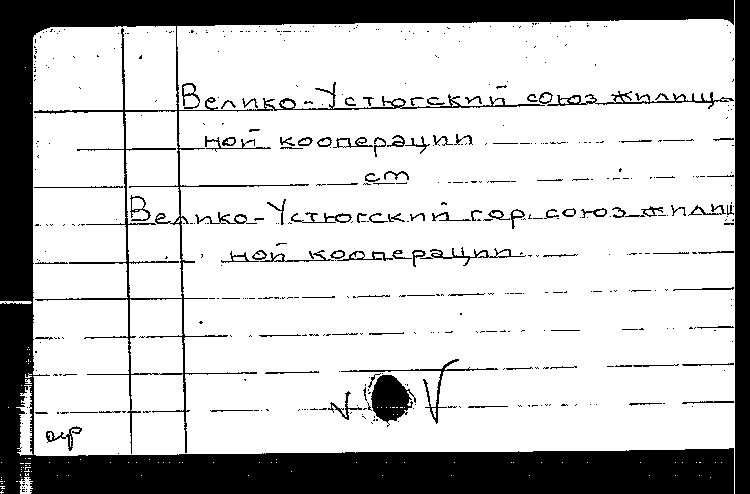 Велико-Устюгский союз жилищ-
ной кооперации
см
Велико-Устюгский гор. союз жилищ
ной кооперации.